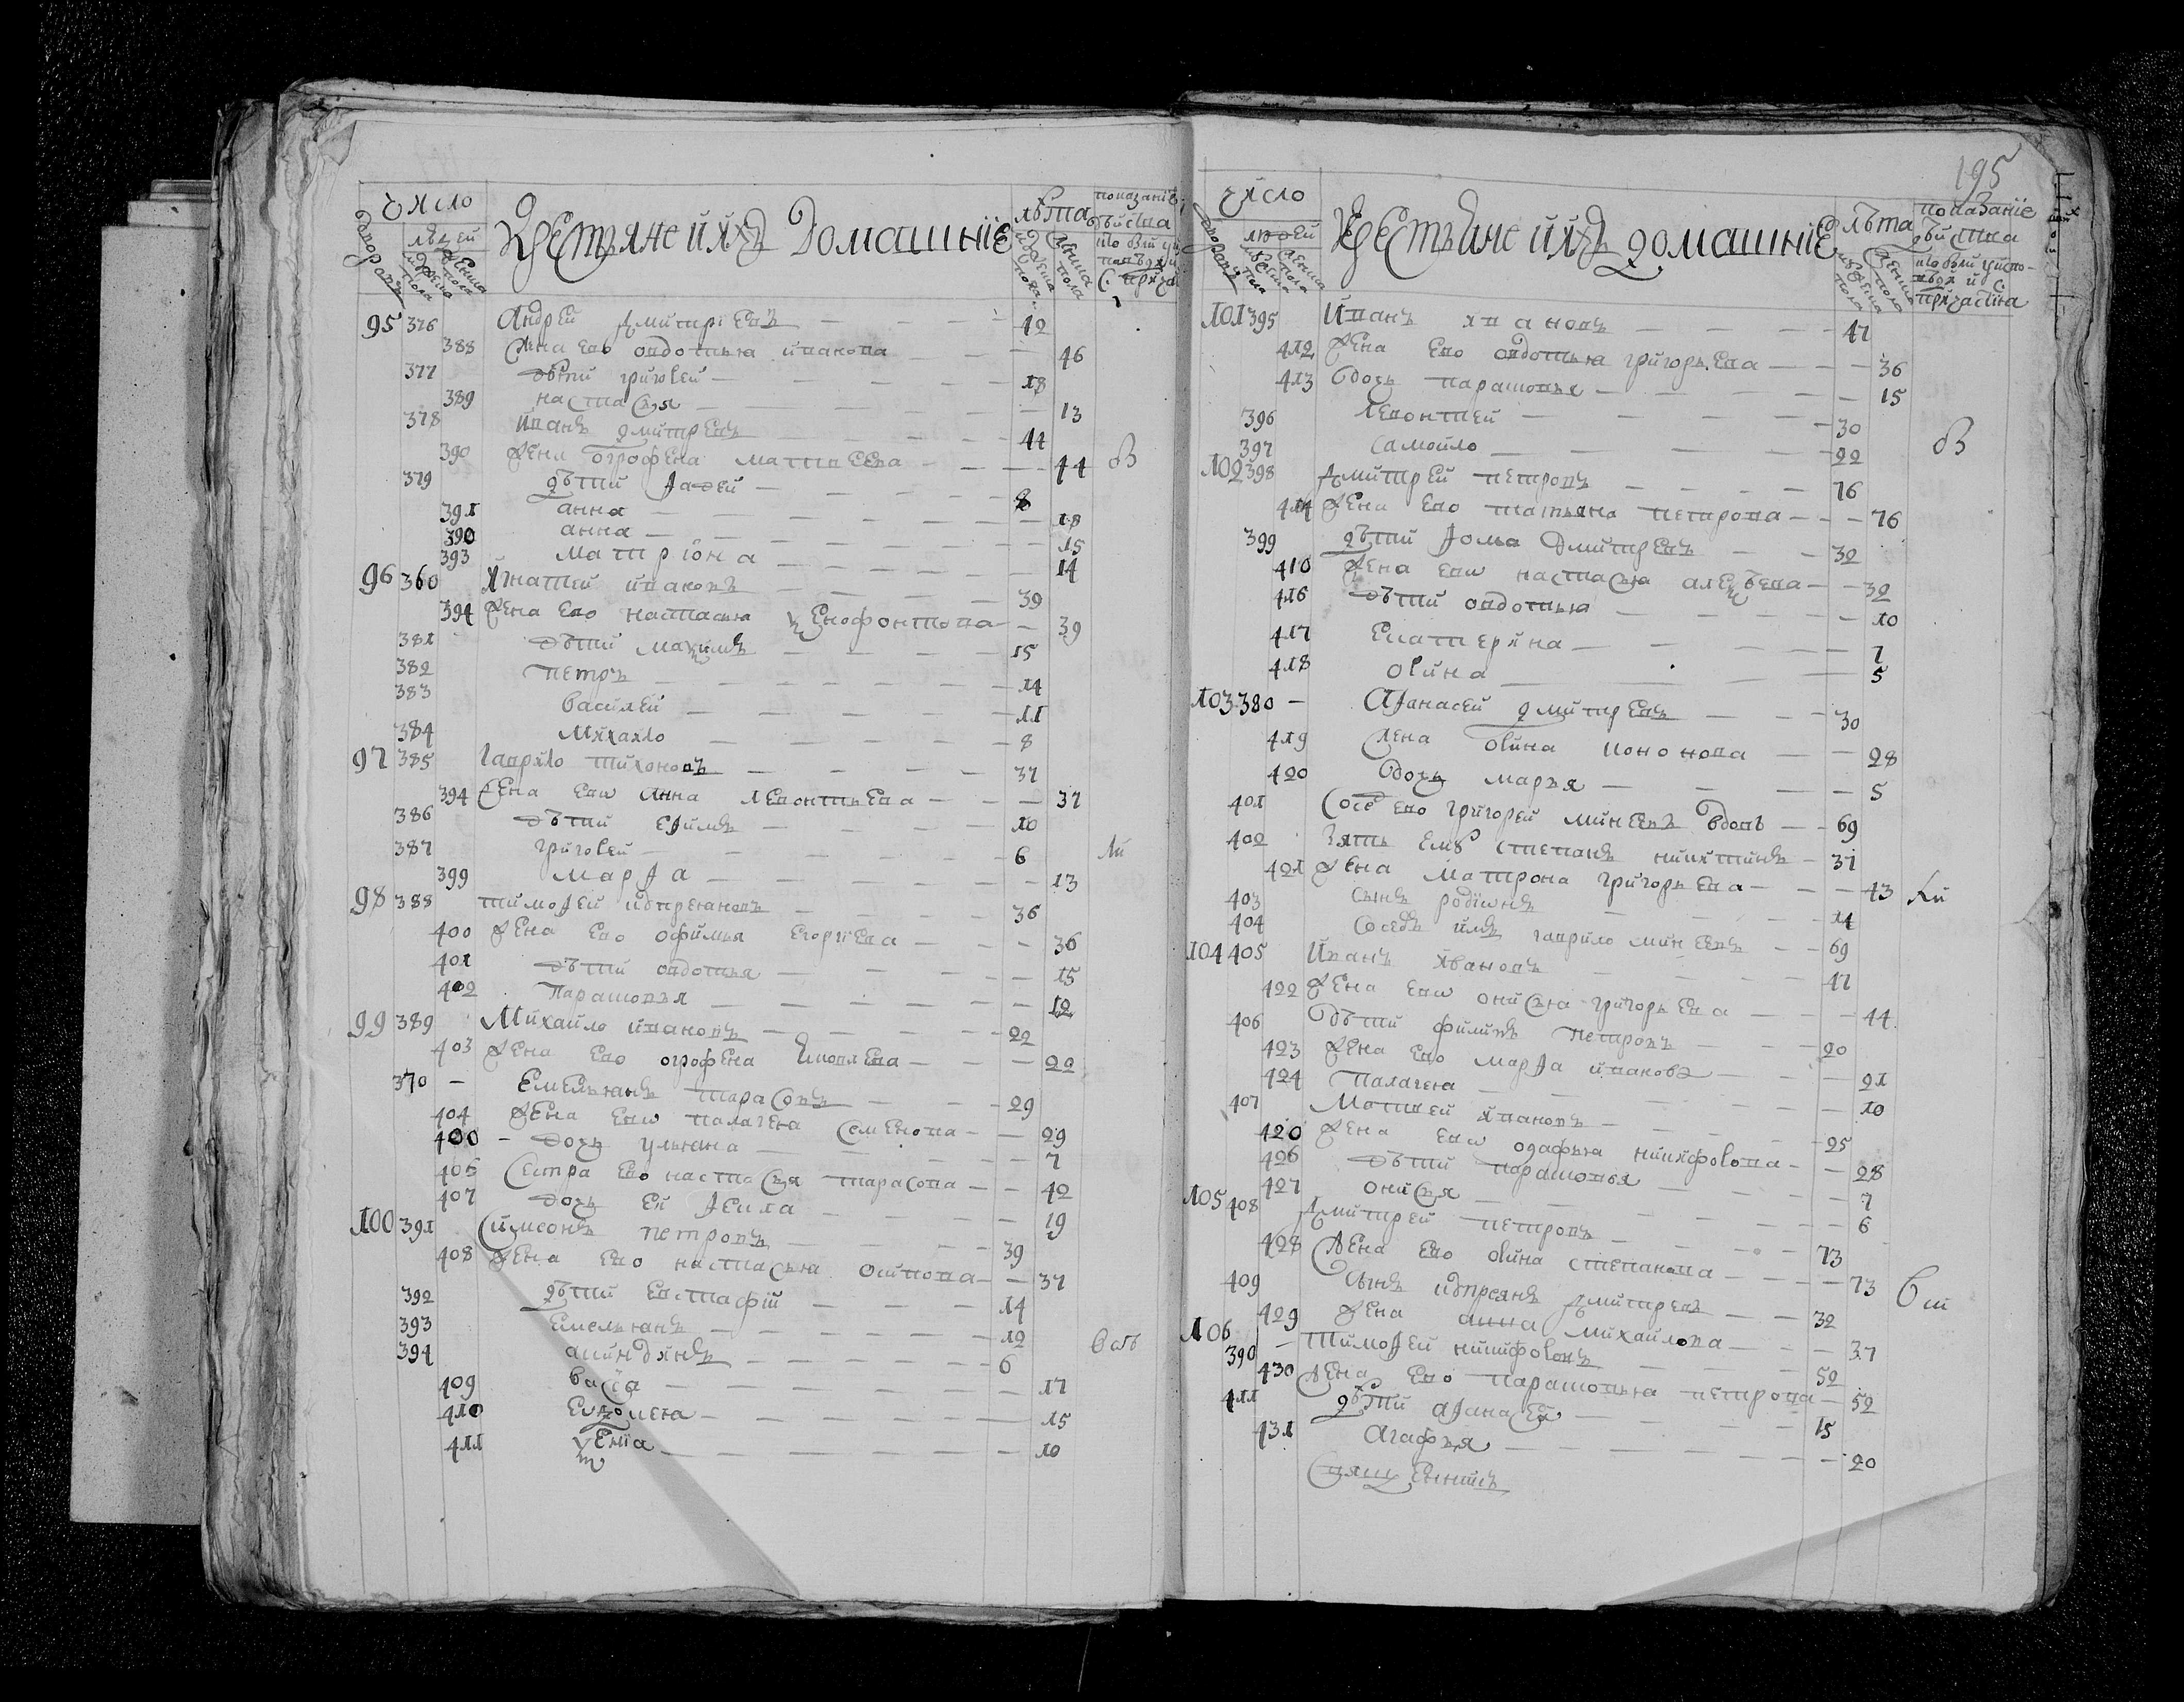 число
крестьяне и ихъ домашнїе
лѣта
показанїе
дворовъ
людей
мужеска пола
женска пола
мужеска пола
женска пола
95 376 Андрей дмитрїевъ 42
388 жена ево овдотья иванова 46
377 дѣти григорей 18
389 настасья 13
378 иванъ дмитревъ 44
390 жена огрофена матвеева 44
379 дѣти фадей 8
391 анна 18
390 анна 15
393 матрїона 14
96 360 Игнатей ивановъ 39
394 жена ево настасья ксенофонтова 39
381 дѣти максимъ 15
382 петръ 14
383 василей 11
384 михаило 8
97 385 гаврило тихоновъ 37
394 жена ево анна левонтьева 37
386 дѣти ефимъ 10
387 григорей 6
399 марфа 13
98 388 тимофей куприяновъ 36
400 жена ево офимья егорїева 36
401 дѣти овдотья 15
402 парасковья 12
99 389 Михайло ивановъ 22
403 жена ево огрофена 22
370 емельянъ тарасовъ 29
404 жена ево палагея семенова 29
400 дочь ульяна 7
406 сестра ево настасья тарасова 42
407 дочь ей фекла 19
100 391 симеонъ петровъ 39
408 жена ево настасья осипова 37
392 дѣти евстафїй 14
393 емельянъ 12
394 акиндинъ 6
409 васса 17
410 евдокея 15
411 ксенїа 10
195
число
крестьяне и ихъ домашнїе
лѣта
показанїе
дворовъ
людей
мужеска пола
женска пола
мужеска пола
женска пола
причастїа
101 395 Иванъ ивановъ 47
412 жена ево овдотья григорьева 36
413 дочь парасковья 15
396 левонтей 30
397 самойло 22
102 398 дмитрей петровъ 76
414 жена ево татьяна петрова 76
399 дѣти фома дмитревъ 32
410 жена ево настасья алексѣева 32
416 дѣти овдотья 10
417 екатерина 7
418 орина 5
103 380 Афанасей дмитревъ 30
419 жена орина кононова 28
420 дочь марья 5
401 сосѣ ево григорей минеевъ вдовъ 69
402 зять емȣ степанъ никитинъ 37
421 жена матрона григорьева 43
403 сынъ родїонъ 14
404 сосѣдъ имъ гаврило минеевъ 69
104 405 Иванъ ивановъ 47
422 жена ево онисья григорьева 44
406 дѣти филипъ петровъ 20
423 жена ево марфа иванова 21
424 палагея 10
407 матвей ивановъ 25
420 жена ево огафья никифорова 28
426 дѣти парасковья 7
427 онисья 6
105 408 дмитрей петровъ 73
428 жена ево орина степанова 73
409 сынъ купреянъ дмитревъ 32
429 жена анна михайлова 37
106 390 тимофей никифоровъ 52
430 жена ево парасковья петрова 52
411 дѣти афанасей 15
431 агафья 20
священникъ